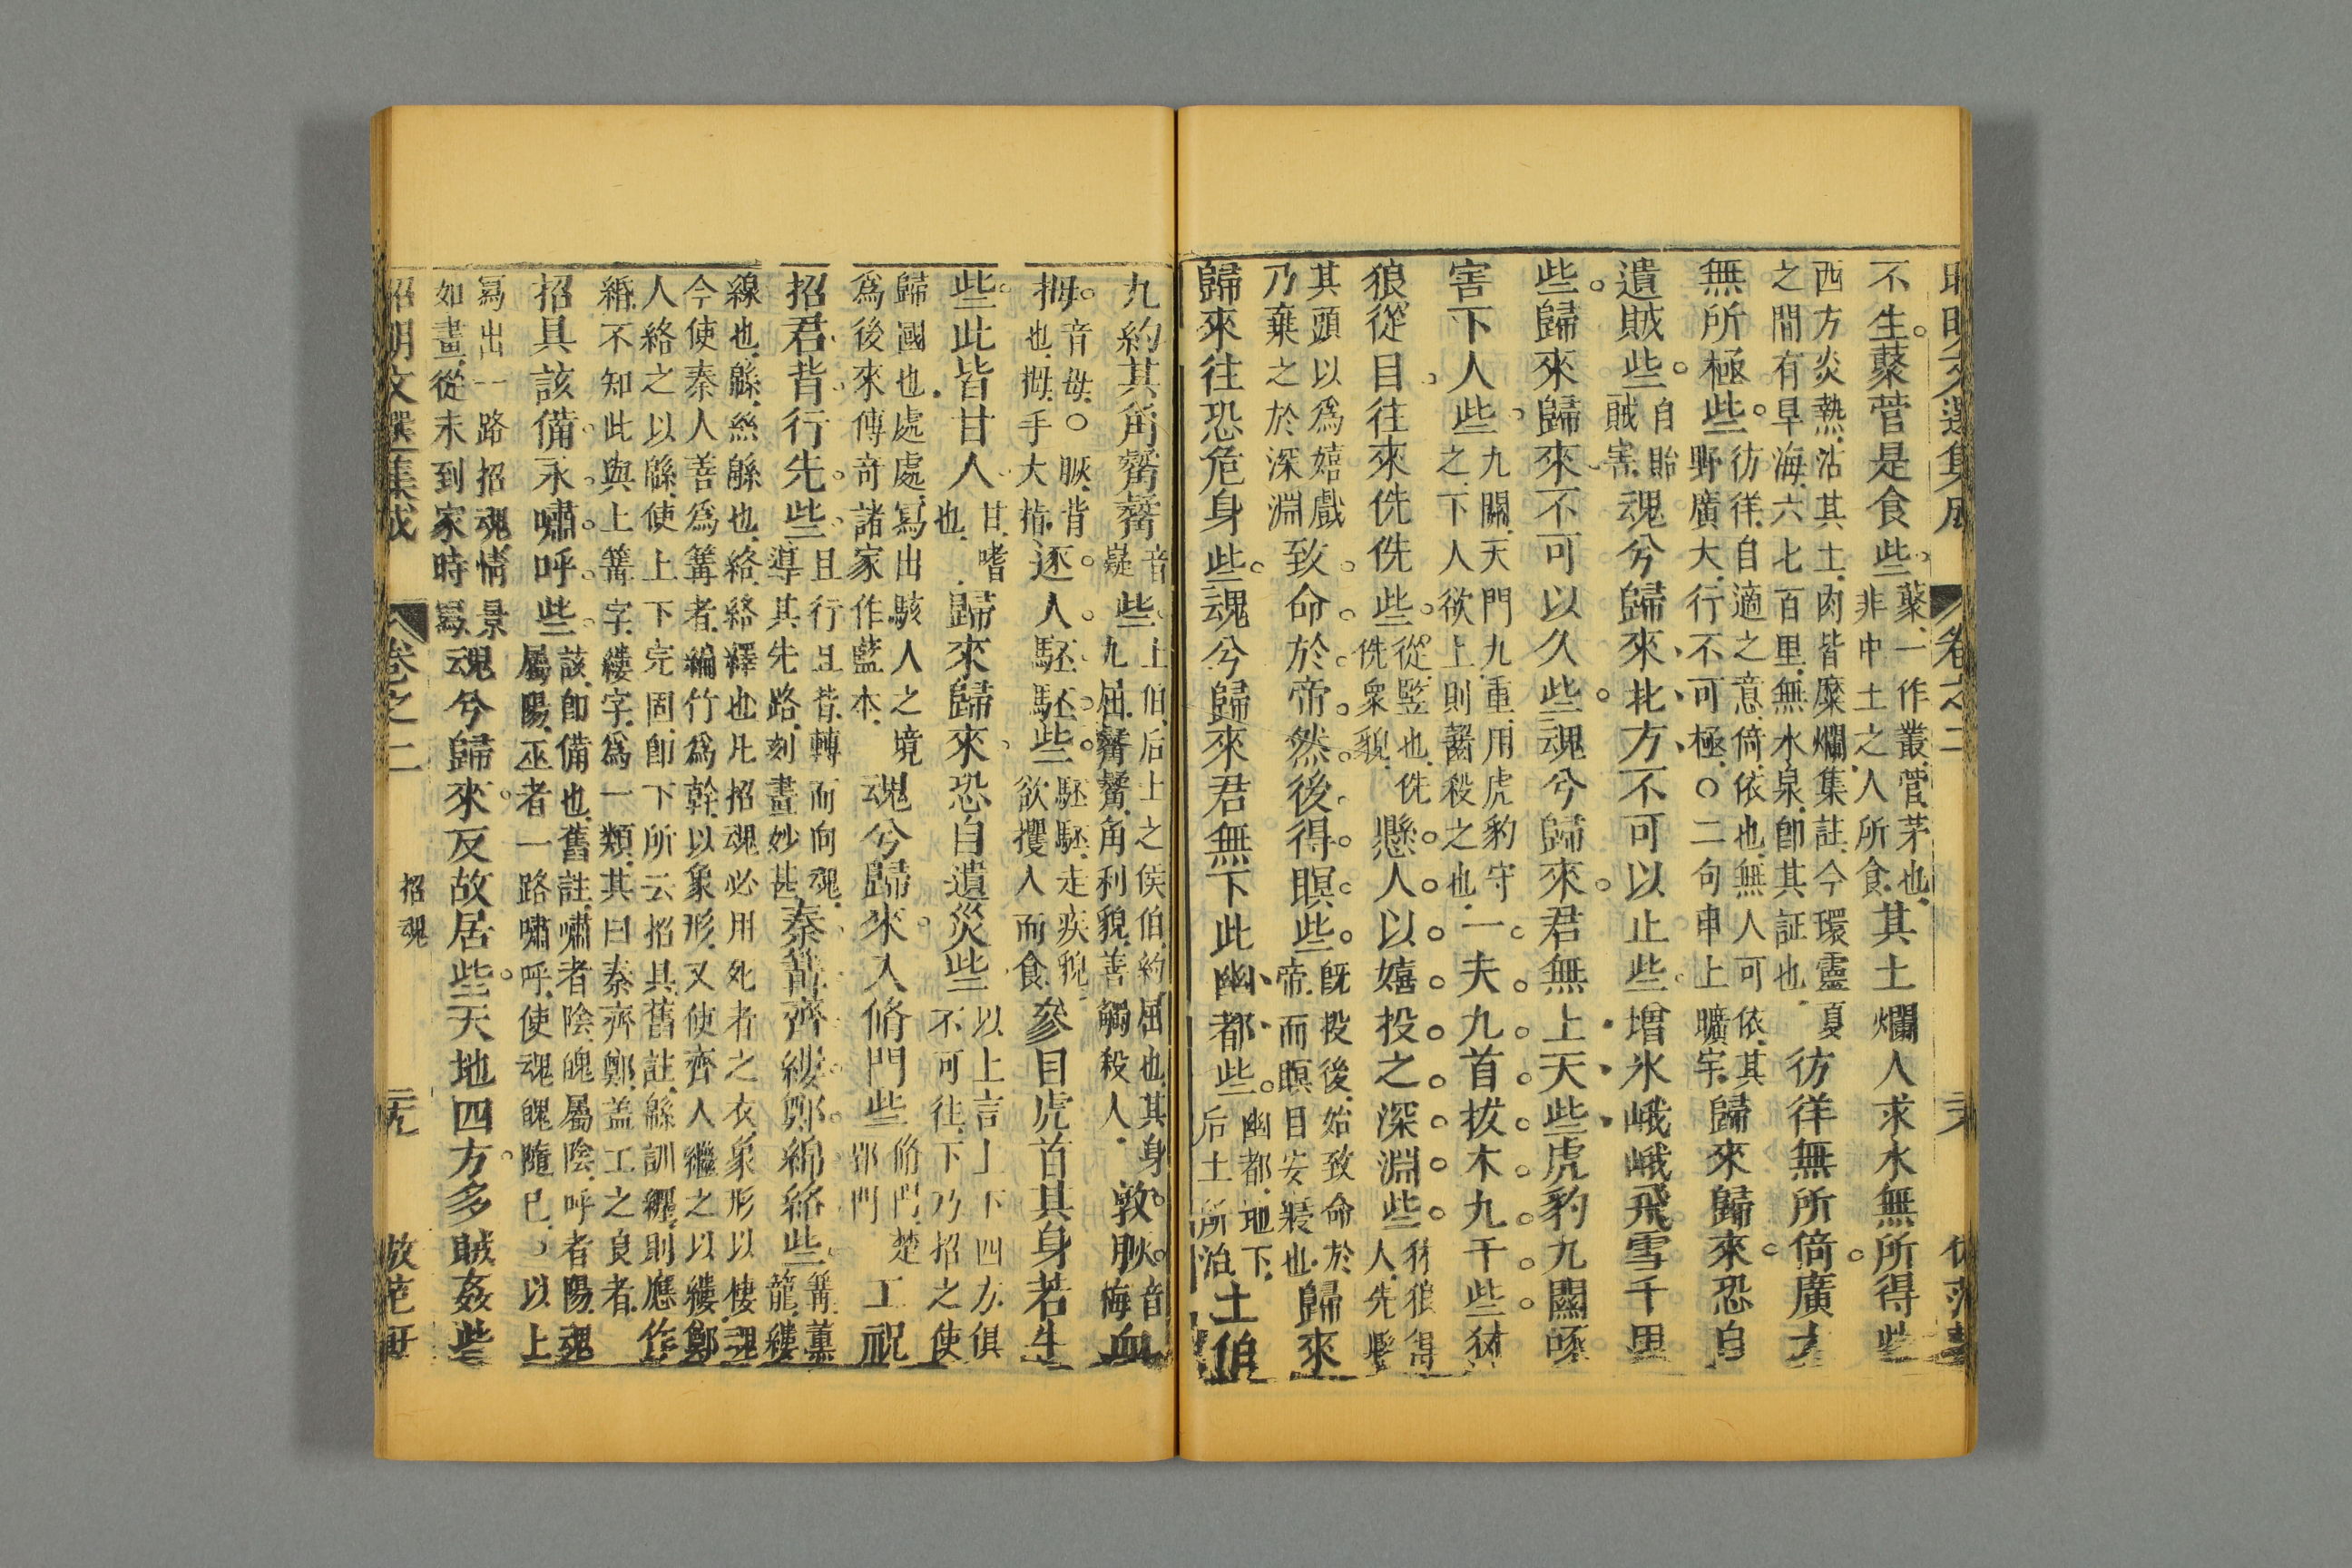 昭明文選集成 卷之二
不生藂菅是食些藂一作叢菅茅也非中土之人所食其土爛人求水無所得些
西方炎熱沾其土肉皆糜爛集註今環靈夏之間有旱海六七百里無水泉卽其証也彷徉無所倚廣大
無所極些彷徉自適之意倚依也無人可依其野廣大行不可極○二句申上曠宇歸來歸來恐自
遺賊些自貽賊害魂兮歸來北方不可以止些增冰峨峨飛雪千里
些歸來歸來不可以久些魂兮歸來君無上天些虎豹九關啄
害下人些九關天門九重用虎豹守之下人欲上則齧殺之也一夫九首拔木九千些豺
狼從目往來侁侁些從竪也侁侁衆貌懸人以嬉投之深淵些豺狼得人先懸
其頭以爲嬉戲乃棄之於深淵致命於帝然後得瞑些旣投後始致命於帝而瞑目安寢也歸來
歸來往恐危身些魂兮歸來君無下此幽都些幽都地下后土所治土伯
九約其角觺觺音嶷些土伯后土之侯伯約屈也其身九屈觺觺角利貌善觸殺人敦脄音梅血
拇音母○脄背也拇手大指逐人駓駓些駓駓走疾貌欲攫人而食參目虎首其身若牛
些此皆甘人甘嗜也歸來歸來恐自遺災些以上言上下四方俱不可往下乃招之使
歸國也處處寫出駭人之境爲後來傳奇諸家作藍本魂兮歸來入脩門些脩門楚郢門工祝
招君背行先些且行且背轉而向魂導其先路刻畫妙甚秦篝齊縷鄭綿絡些篝薰籠縷
線也緜絲緜也絡絡繹也凡招魂必用死者之衣象形以棲魂今使秦人善爲篝者編竹爲幹以象形又使齊人繼之以縷鄭
人絡之以緜使上下完固卽下所云招具舊註緜訓纏則應作緡不知此與上篝字縷字爲一類其曰秦齊鄭盖工之良者
招具該備永嘯呼些該卽備也舊註嘯者陰魄屬陰呼者陽魂屬陽巫者一路嘯呼使魂魄隨已以上
寫出一路招魂情景如畫從未到家時寫魂兮歸來反故居些天地四方多賊姦些
昭明文選集成 卷之二 招魂